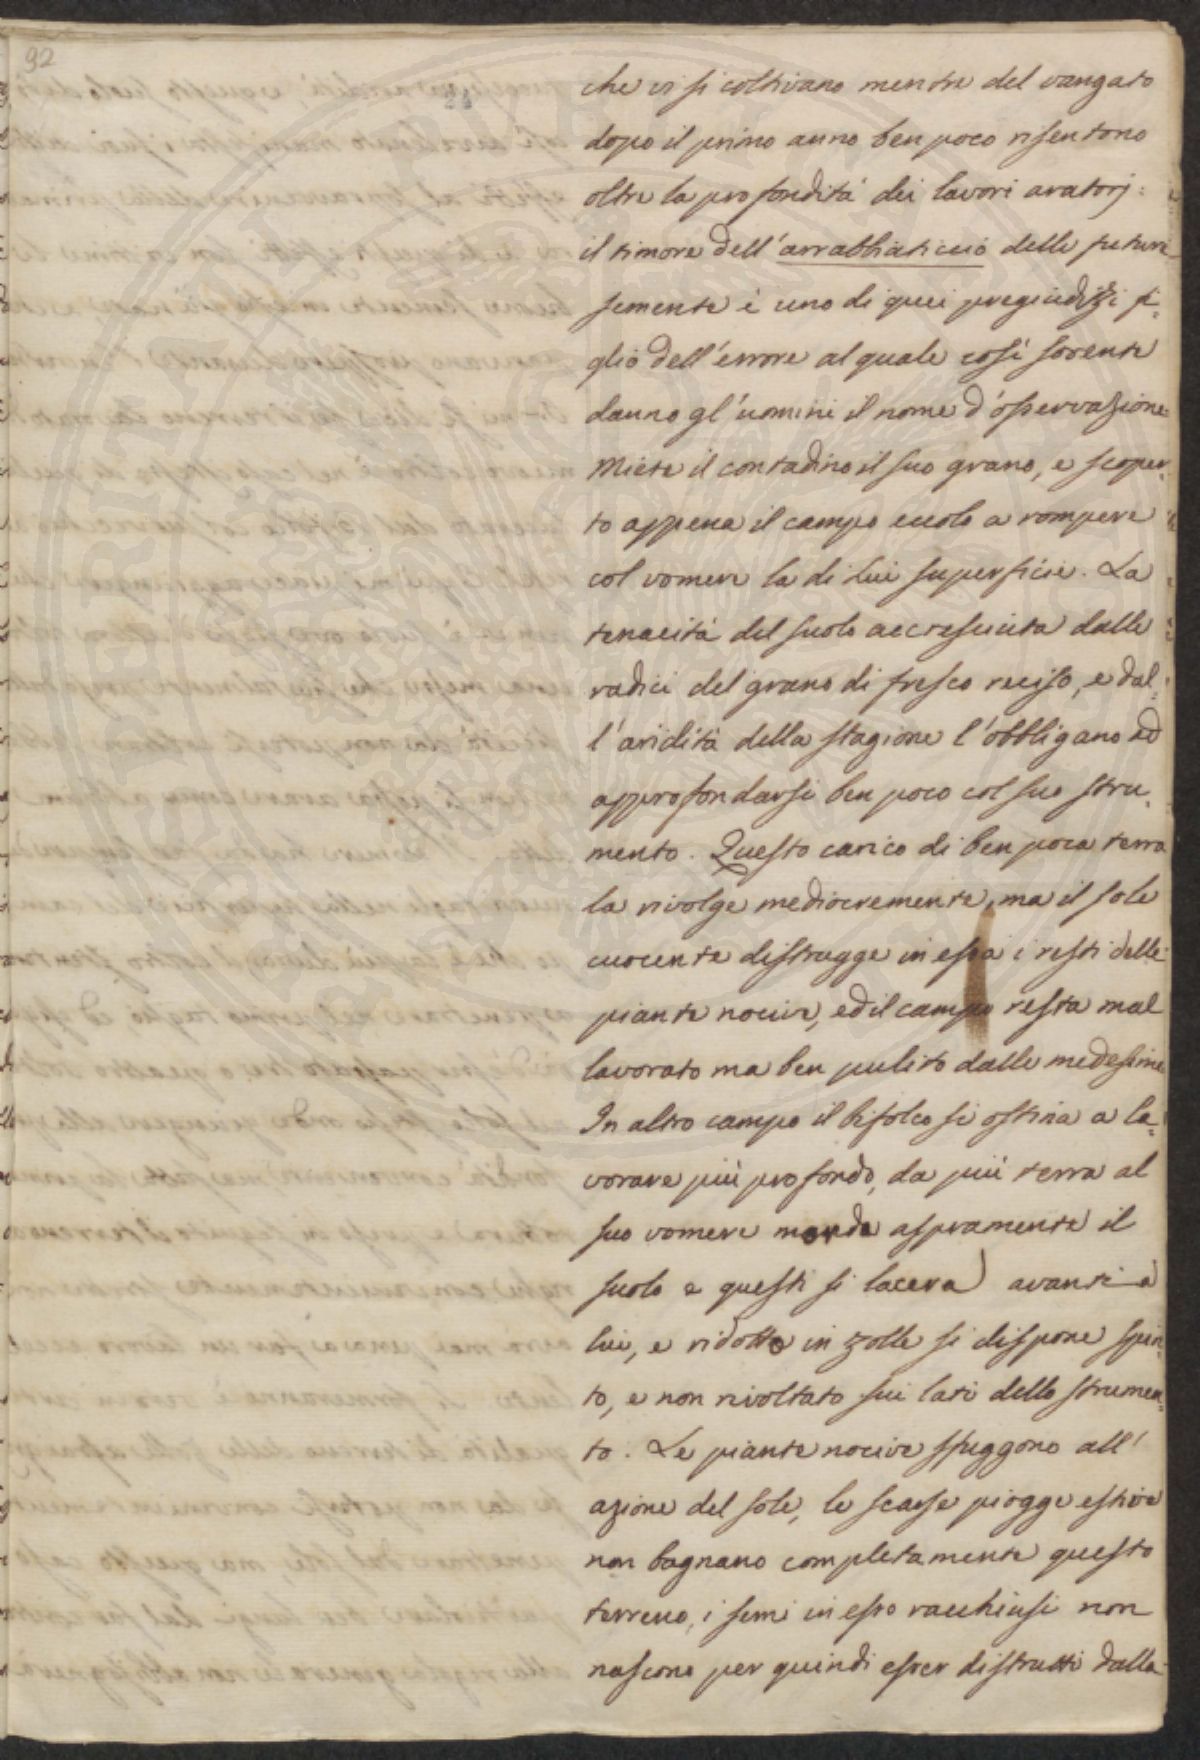 92
che vi si coltivano mentre del vangato
dopo il primo anno ben poco risentono
oltre la profondità dei lavori aratorj:
il timore dell'arrabbiaticcio delle future
semente è uno di quei pregiudizzi fi-
glio dell'errore al quale così sovente
danno gl'uomini il nome d'osservazione.
Miete il contadino il suo grano, e scoper-
to appena il campo eccolo a rompere
col vomere la di Lui superficie. La
tenacità del suolo accresciuta dalle
radici del grano di fresco reciso, e dal-
l'aridità della stagione l'obbligano ad
approfondarsi ben poco col suo stru-
mento. Questo carico di ben poca terra
la rivolge mediocremente, ma il sole
cuocente distrugge in essa i resti delle
piante nocive, ed il campo resta mal
lavorato ma ben pulito dalle medesime
In altro campo il bifolco si ostina a la-
vorare più profondo, da più terra al
suo vomere morde aspramente il
suolo e questi si lacera avanti a
lui, e ridotto in zolle si dispone spin-
to, e non rivoltato sui lati dello strumen-
to. Le piante nocive sfuggono all'
azione del sole, le scarse piogge estive
non bagnano completamente questo
terreno, i semi in esso racchiusi non
nascono per quindi esser distrutti dalla